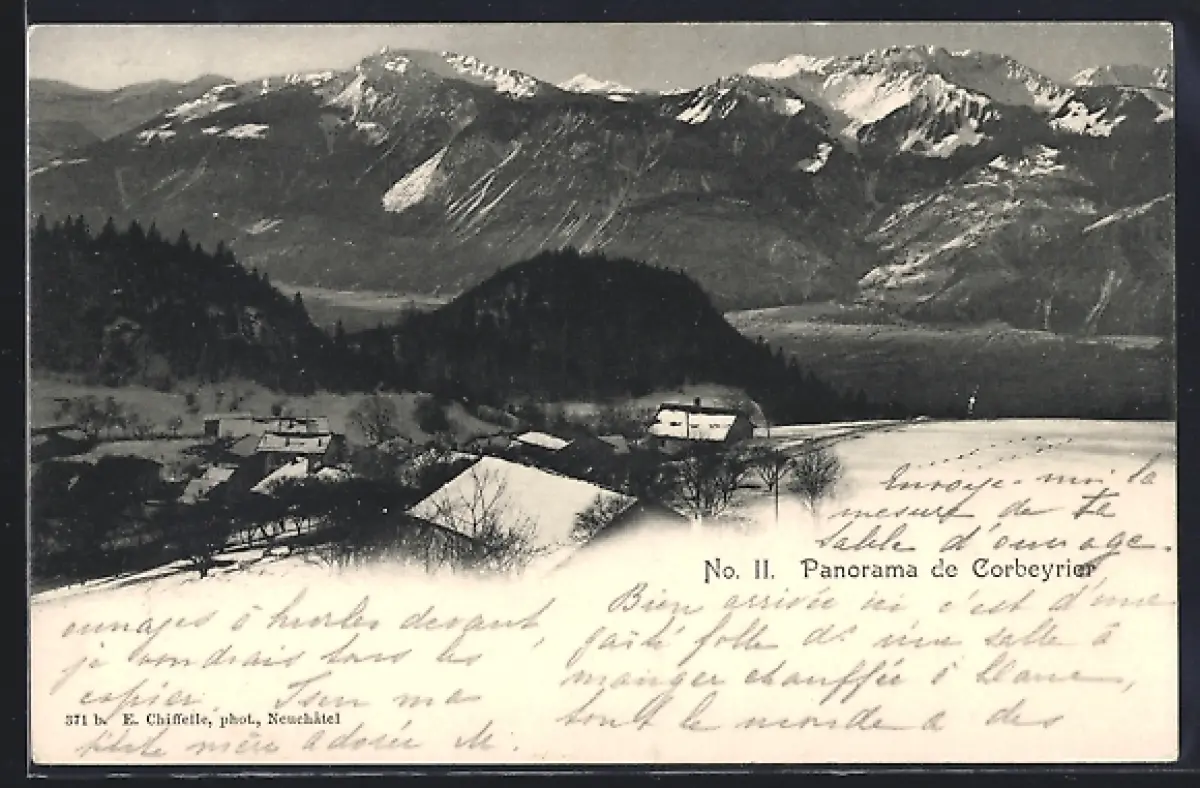 Envoye-moi la
mesure de ta
table d'ouvrage.
No. II. Panorama de Corbeyrier
Bien arrivée ici c'est d'une
gaîté folle ds une salle à
manger chauffée à blanc,
tout le monde a des
ouvrages à hurler devant,
je voudrais tous les
copier.
ma
petite mère adorée M.
371 b. E. Chiffelle, phot., Neuchâtel